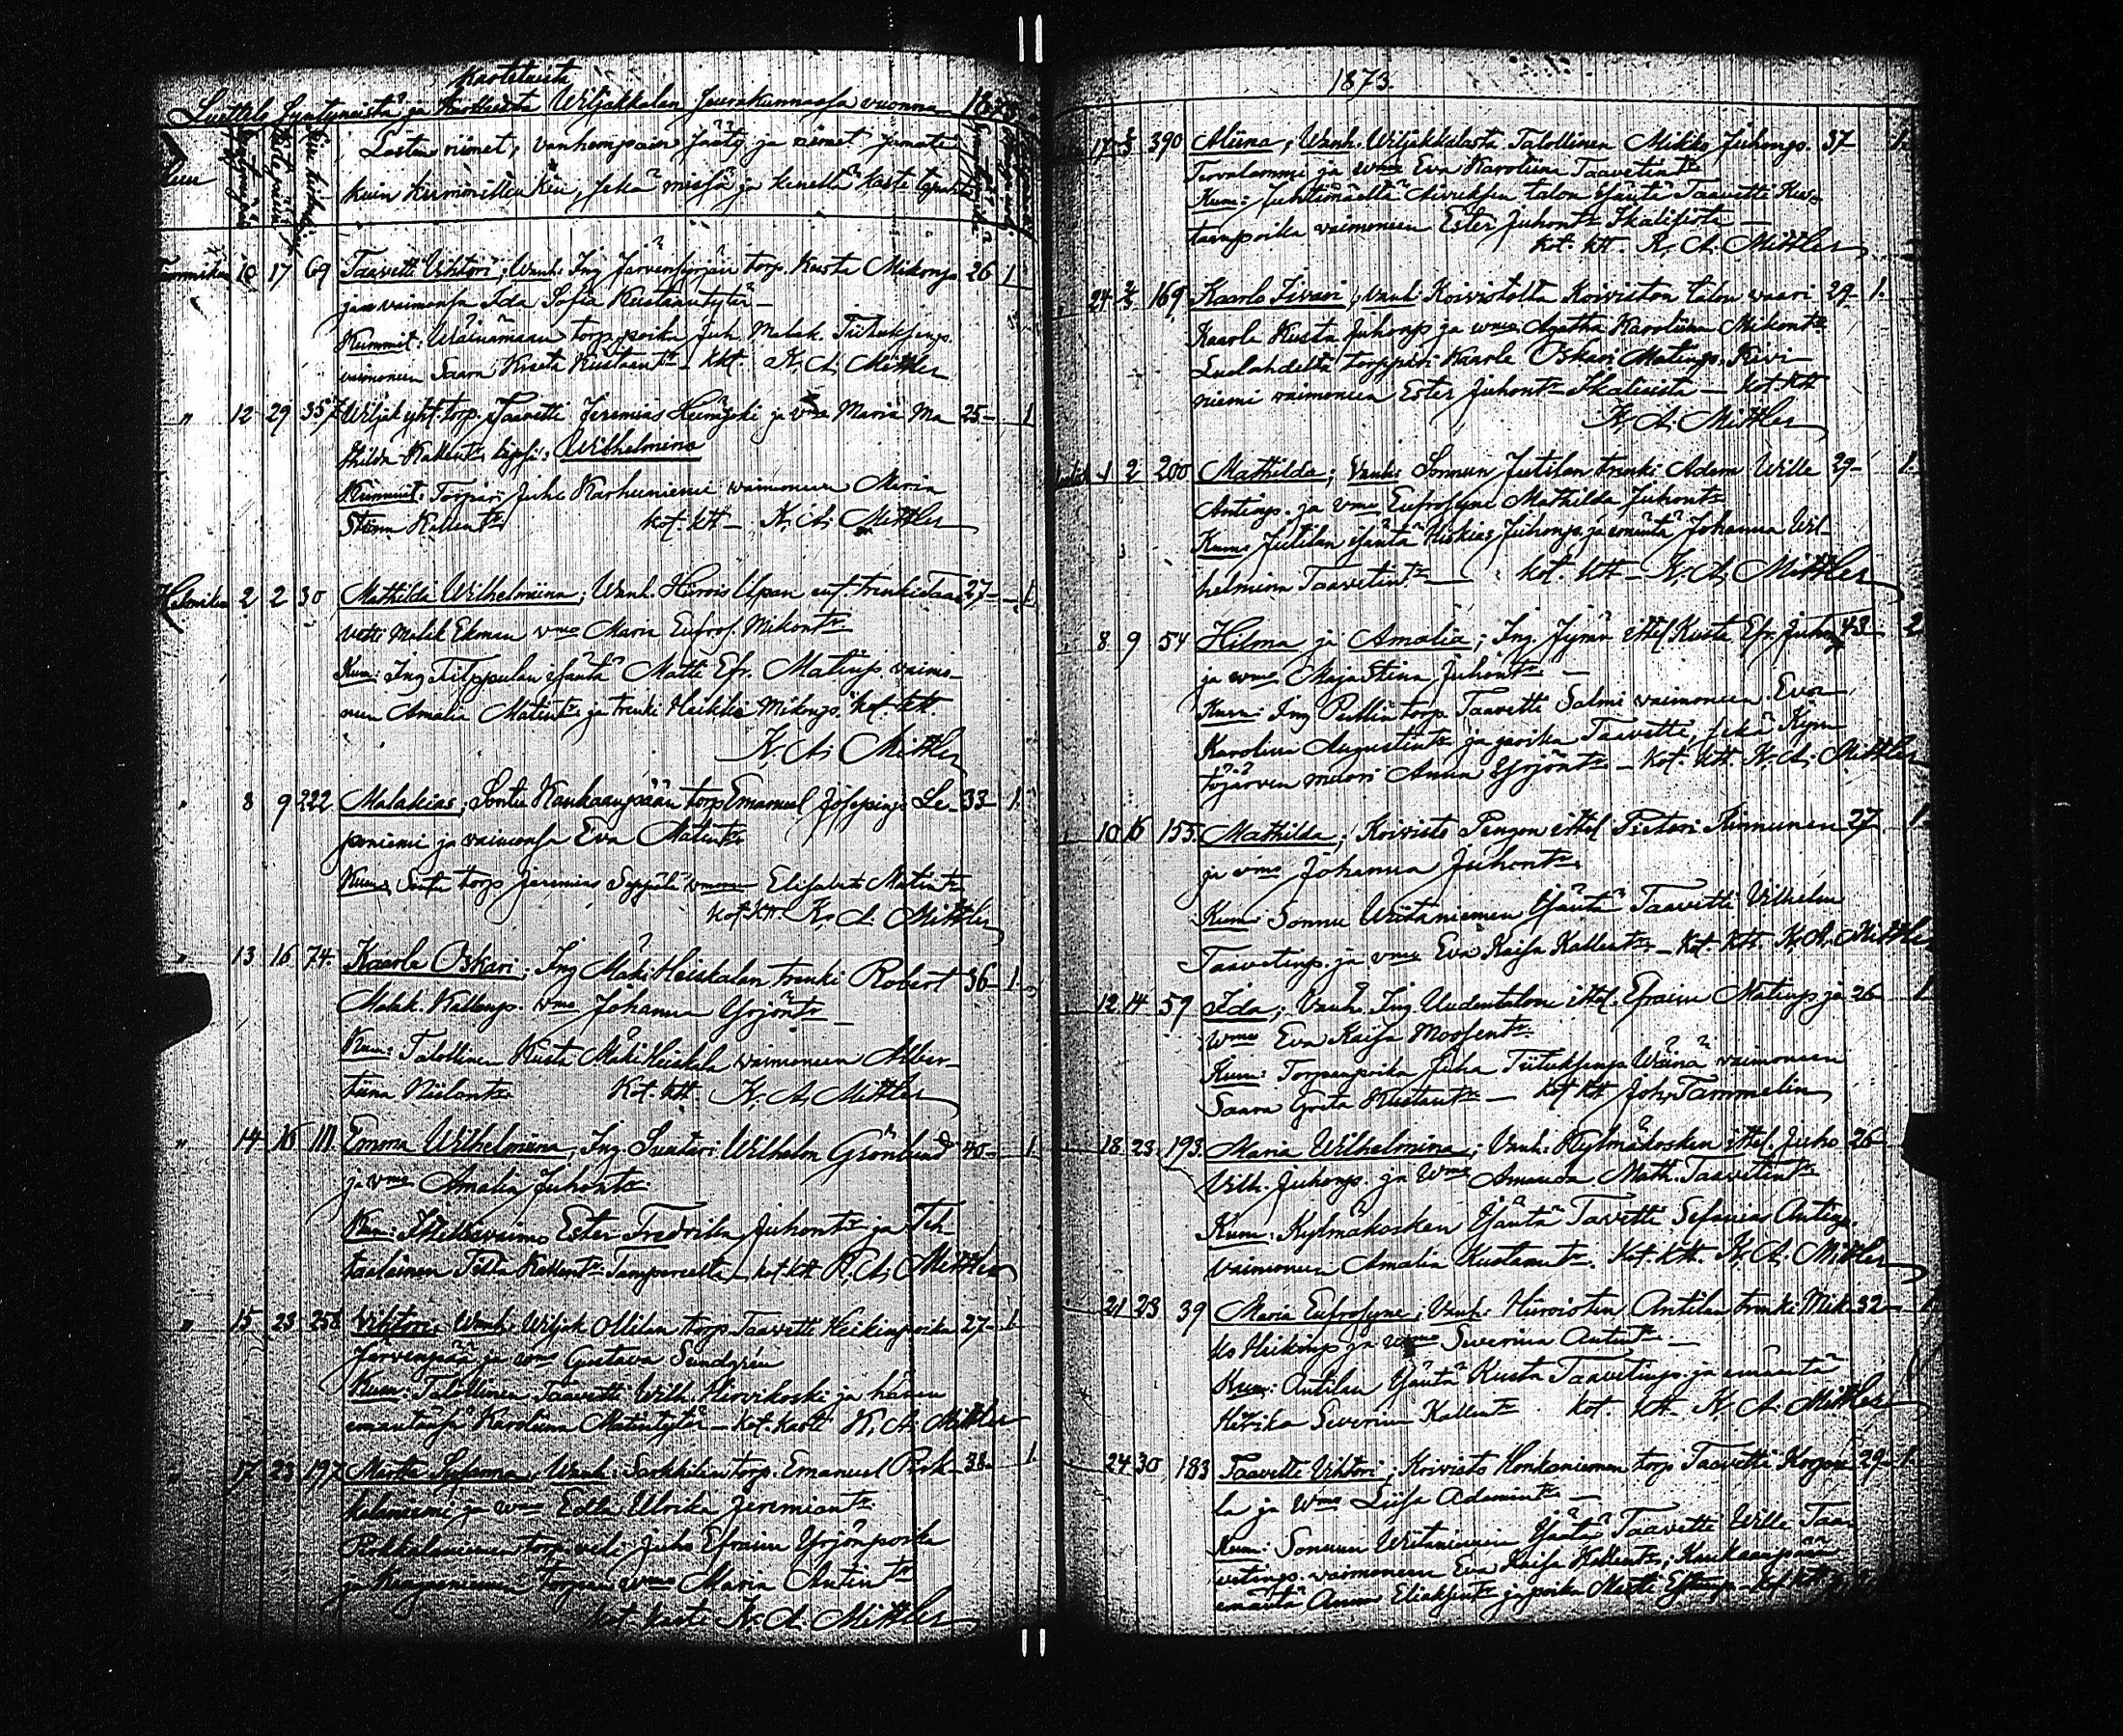 kastetuista
Luettelo Syntyneistä ja Wiljakkalan Seurakunnassa vuonna 1873
Lasten nimet, vanhempain sääty ja nimet samate
kuin kummeitten kin, sekä missä ja kenellä kaste tapahtui
Kuu
Tammikuu 10 17 69 Taavetti Vihtori; Wanh. Ing Järvensyrjän torp. Kusta Mikonp. 26 1
ja vaimonsa Ida Sofia Kustaantytär
Kummit: Wäinämaan torp. poika Juh. Malak. Tiituksenp.
vaimoneen Saara Kreeta Kustaantr. kkt. K. A. Mittler
" 12 29 357 Wiljak yht. torp. Taavetti Jeremias Heinijoki ja vmo Maria Ma 25 1
thilda Kallentr. lapsi: Wilhelmina
Kummit: Torpari Juho Karhuniemi vaimoneen Maria
Stiina Kallentr. kot. ktt K. A. Mittler
Helmikuu 2 2 30 Mathilda Wilhelmiina; Wanh. Hirvois Upan ent. trenki Taa 27 1
vetti Malik Ekman vmo Maria Eufros. Mikontr
Kum: Ing Filppulan isäntä Matti Efr. Matinp. vaimo-
neen Amalia Matintr. ja trenki Heikki Mikonp. kot. ktt.
K. A. Mittler
" 8 9 222 Malakias; Sontu Kaukaanpään torp Emanuel Josepinp. Le- 33 1
poniemi ja vaimonsa Eva Matintr.
Kum. torp Jeremias Seppälä vmoneen Elisabet Matintr
kot ktt. K. A. Mittler
" 13 16 74. Kaarle Oskari; Ing Mäki Heiskalan trenki Robert 36 1
Malak. Kallenp. vmo Johanna Yrjöntr
Kum: Talollinen Kusta Mäki Heiskala vaimoneen Alber-
tiina Niilontr. Kot. ktt. K. A. Mittler
" 14 16 111. Emma Wilhelmiina, Ing. Suutari Wilhelm Grönlund 40 1
ja vmo Amalia Juhontr.
Kum: Itellisvaimo Ester Fredrika Juhontr ja Teh-
taalainen Tilda Kallentr Tampereelta kot. ktt K. A. Mittler
" 15 23 258 Vihtori; Wanh. Wiljak Ollilan torp. Taavetti Heikinpoika 27 1
Järvenpää ja vmo Gustava Sundgrén
Kum: Talollinen Taavetti Wilh. Hirvikoski ja hänen
emäntänsä Karoliina Matintytär kot. kaste K. A. Mittler
" 17 23 197 Martta Wanh: Sarkkilan torp. Emanuel Pirk- 38 1
kalaniemi ja vmo Edla Ulrika Jeremiantr.
torp. veli Juho Efraim Yrjönpoika
ja torpan vmo Maria Antintr
kot. kaste K. A. Mittler
1873.
17 390 Aliina; Wanh. Wiljakkalasta Talollinen Mikko Juhonp. 37 1
Tervalammi ja vmo Eva Karoliina Taavetintr.
Kum: talon isäntä Taavetti Kus-
taanpoika vaimoneen Ester Juhontr Ikalisista
kot. ktt. K. A. Mittler
24 169 Kaarlo Iivari; Wanh. Koivistolta Koiviston talon vaari 29 1
Kaarle Kusta Juhonp ja vmo Agatha Karoliina Mikontr
Luolahdelta torppari Kaarle Oskari Matinp. Kivi-
niemi vaimoneen Ester Juhontr Ikalisista kot. ktt
K. A. Mittler
1 2 200 Mathilda; Wanh. Sonnun Jutilan trenki Adam Wille 29 1
Antinp. ja vmo Eufrosyne Mathilda Juhontr
Kum: Jutilan isäntä Hiskias Juhonp. ja emäntä Johanna Wil-
helmina Taavetintr. kot. ktt. K. A. Mittler
8 9 54 Hilma ja Amalia; Ing. Jyrän ittel Kusta Efr. Juhonp 43 2
ja vmo Maja Stina Juhontr
Kum: Ing Puttin torp. Taavetti Salmi vaimoneen Eva
Karolina Augustintr. ja poika Taavetti, sekä Kyrö-
muori Anna Yrjöntr. kot. ktt. K. A. Mittler
10 16 155. Mathilda; Koivisto Pengon ittel Pietari Rinnunen 27 1
ja vmo Johanna Juhontr.
Kum: Sonnu Wiitaniemen isäntä Taavetti Vilhelm
Taavetinp. ja vmo Eva Kaisa Kallentr. kot. ktt. K. A. Mittler
12 14 59 Ida; Wanh. Ing Uudentalon ittel. Efraim Matinp ja 26 1
vmo Eva Kaisa Moosentr.
Kum: Torpanpoika Juha Tiituksenp. Wäinä vaimoneen
Saara Greta Kustantr. kot ktt Joh. Tammelin
18 23 193. Maria Wilhelmina; Vanh: Kylmäkosken ittel. Juho 26
Vilh. Juhonp. ja vmo Amanda Math. Taavetintr.
Kum: Kylmäkosken isäntä Tavetti Sefanias Antinp.
vaimoneen Amalia Kustaantr. kot. ktt. K. A. Mittler
21 23 39 Maria Eufrosyne; Vanh: Hirvoisten Antilan trenki Mik- 32 1
ko Heikinp ja vmo Severina Antintr.
Kum: Antilan isäntä Kusta Taavetinp. ja emäntä
Severina Kallentr kot. ktt. K. A. Mittler
24 30 183 Taavetti Vihtori; Koivisto Honkaniemen torp Taavetti Korpu 29 1
la ja vmo Liisa Adamintr.
Kum: Sonnun Wiitaniemen isäntä Taavetti Wille Taa-
vetinp. vaimoneen Eva Kaisa Kallentr; Kaukaanpään
emäntä Anna ja poika Matti kot. ktt